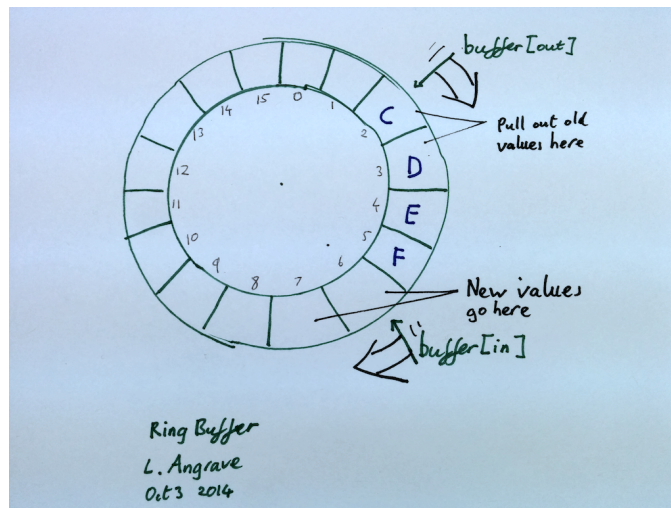 buffer[out]
Pull out old
values here
0
1
2
3
4
5
6
7
8
9
10
11
12
13
14
15
C
D
E
F
New values
go here
buffer[in]
Ring Buffer
L. Angrave
Oct 3 2014